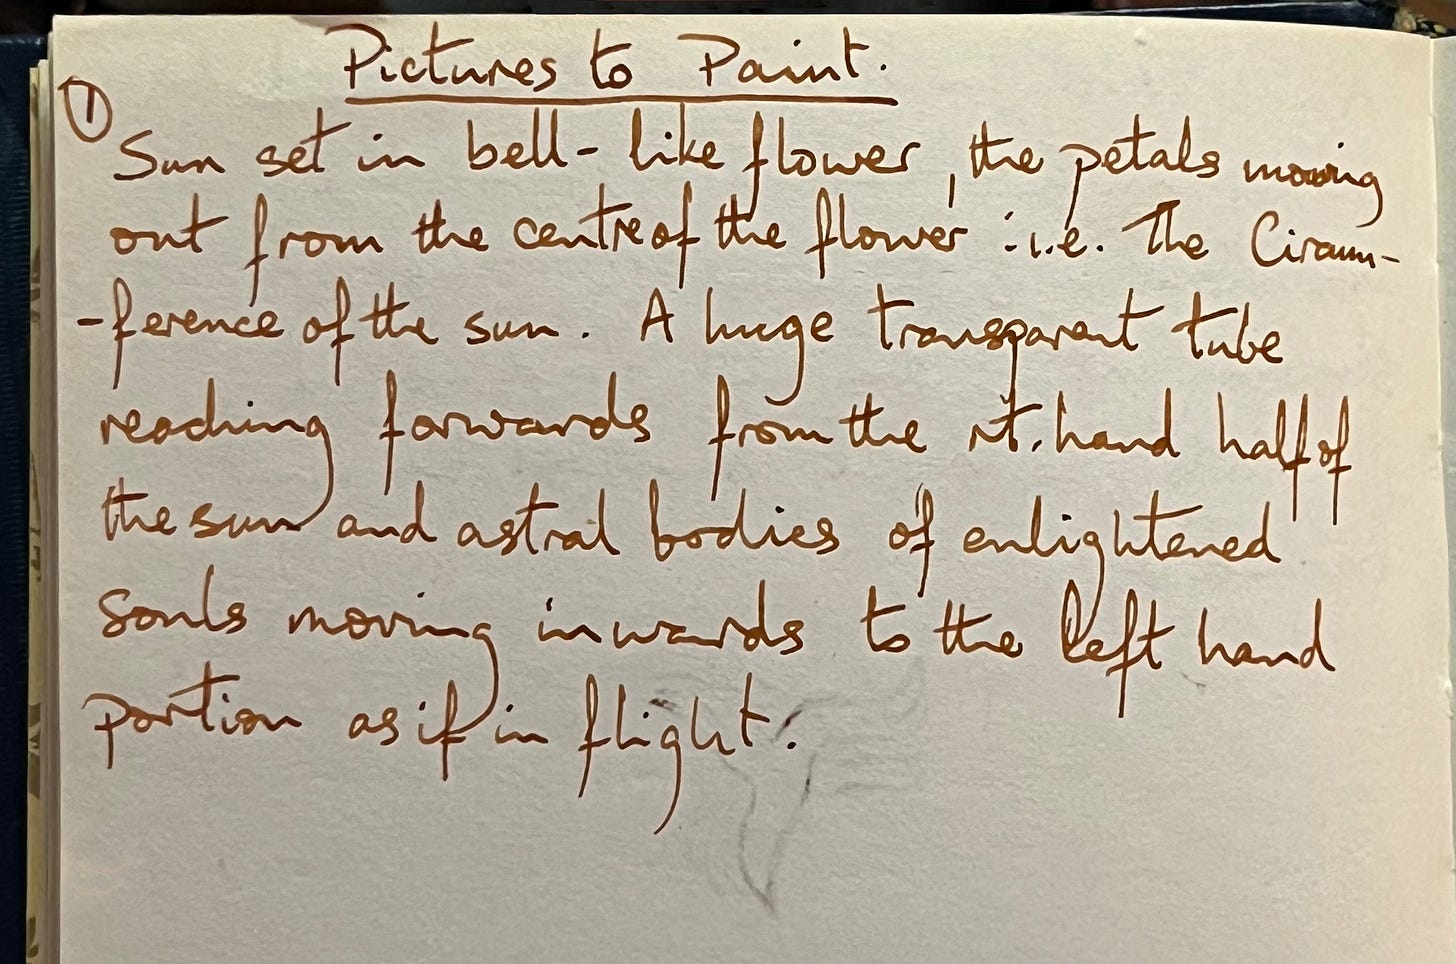 Pictures to Paint.
① Sun set in bell-like flower, the petals moving
out from the centre of the flower i.e. The Circum-
-ference of the sun. A huge transparent tube
reaching forwards from the rt. hand half of
the sun and astral bodies of enlightened
souls moving inwards to the left hand
portion as if in flight.